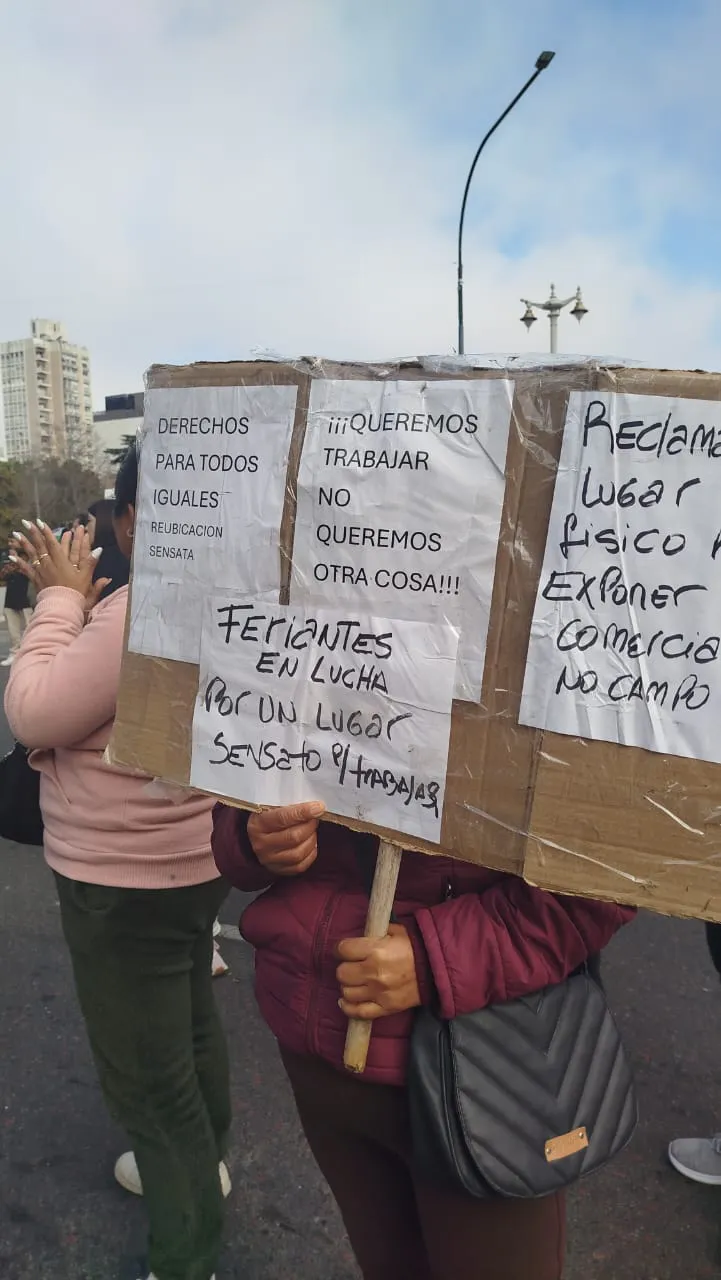 DERECHOS
PARA TODOS
IGUALES
REUBICACION
SENSATA
¡¡¡QUEREMOS
TRABAJAR
NO
QUEREMOS
OTRA COSA!!!
FERIANTES
EN LUCHA
POR UN LUGAR
SENSATO P/TRABAJAR
RECLAMA
LUGAR
FISICO
EXPONER
COMERCIA
NO CAMPO